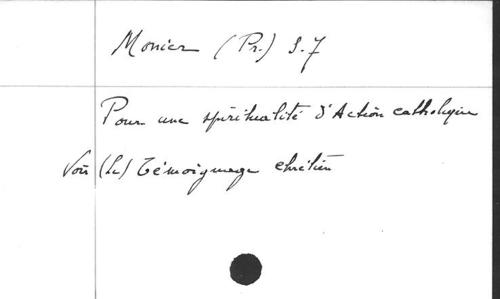 Monier (Pr.) S.J
Pour une spiritualité d'Action catholique
Voir (Le) Témoignage chrétien